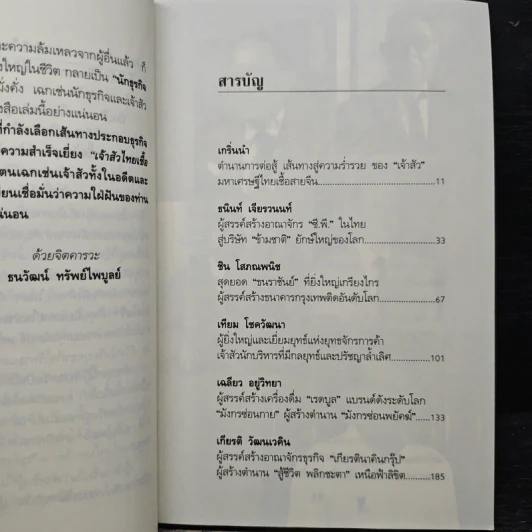 ะความล้มเหลวจากผู้อื่นแล้ว ก็
งใหญ่ในชีวิต กลายเป็น "นักธุรกิจ
มั่งคั่ง เฉกเช่นนักธุรกิจและเจ้าสัว
สือเล่มนี้อย่างแน่นอน
ที่กำลังเลือกเส้นทางประกอบธุรกิจ
ความสำเร็จเยี่ยง "เจ้าสัวไทยเชื้อ
ตนเฉกเช่นเจ้าสัวทั้งในอดีตและ
ขียนเชื่อมั่นว่าความใฝ่ฝันของท่าน
น่นอน
ด้วยจิตคารวะ
ธนวัฒน์ ทรัพย์ไพบูลย์
สารบัญ
เกริ่นนำ
ตำนานการต่อสู้ เส้นทางสู่ความร่ำรวย ของ "เจ้าสัว"
มหาเศรษฐีไทยเชื้อสายจีน.................11
ธนินท์ เจียรวนนท์
ผู้สรรค์สร้างอาณาจักร "ซี.พี." ในไทย
สู่บริษัท "ข้ามชาติ" ยักษ์ใหญ่ของโลก.................33
ชิน โสภณพนิช
สุดยอด "ขนราชันย์" ที่ยิ่งใหญ่เกรียงไกร
ผู้สรรค์สร้างธนาคารกรุงเทพติดอันดับโลก.................67
เทียม โชควัฒนา
ผู้ยิ่งใหญ่และเยี่ยมยุทธ์แห่งยุทธจักรการค้า
เจ้าสัวนักบริหารที่มีกลยุทธ์และปรัชญาล้ำเลิศ.................101
เฉลียว อยู่วิทยา
ผู้สรรค์สร้างเครื่องดื่ม "เรดบูล" แบรนด์ดังระดับโลก
"มังกรซ่อนกาย" ผู้สร้างตำนาน "มังกรซ่อนพยัคฆ์".......133
เกียรติ วัฒนเวคิน
ผู้สรรค์สร้างอาณาจักรธุรกิจ "เกียรตินาคินกรุ๊ป"
ผู้สร้างตำนาน "สู้ชีวิต พลิกชะตา" เหนือฟ้าลิขิต.............185